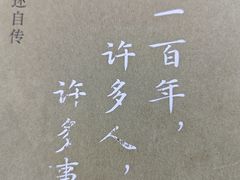 一百年，
许多人，
许多事
述自传